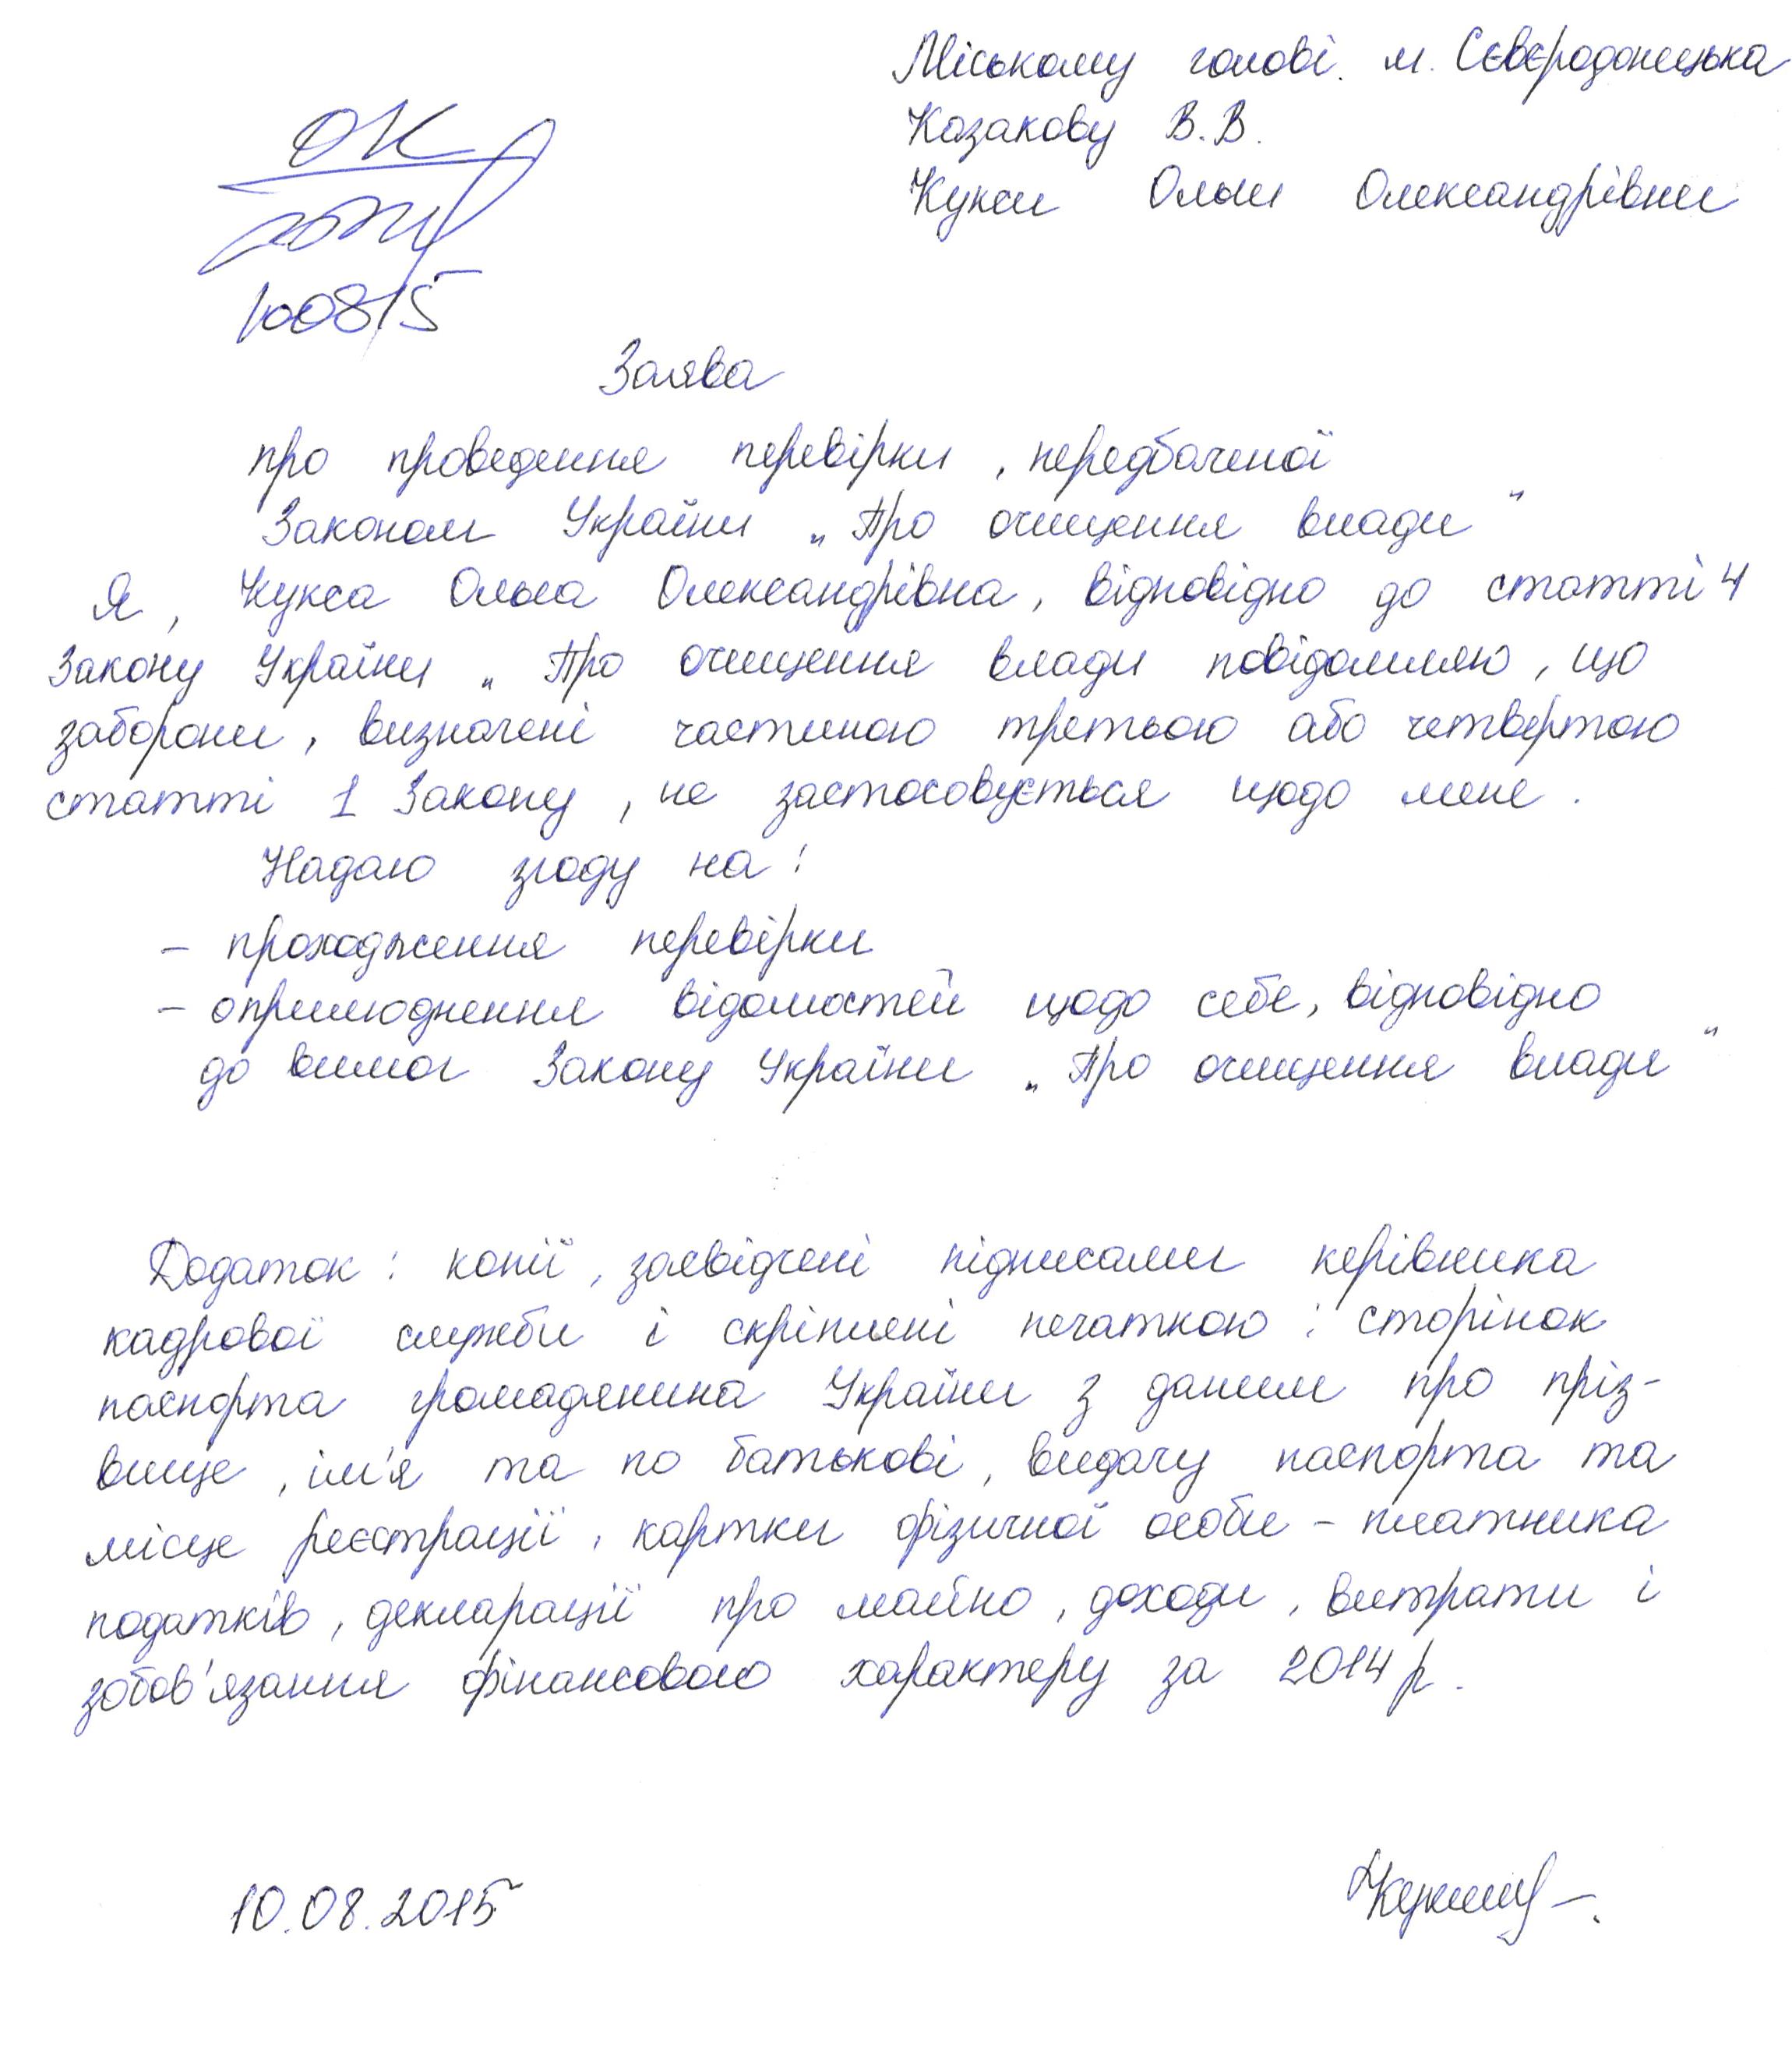 Міському голові м. Сєвєродонецька
Казакову В.В.
Кукси Ольги Олександрівни
ОК
100815
Заява
про проведення перевірки, передбаченої
Законом України „Про очищення влади"
Я, Кукса Ольга Олександрівна, відповідно до статті 4
Закону України „Про очищення влади повідомляю, що
заборони, визначені частиною третьою або четвертою
статті 1 Закону, не застосовується щодо мене.
Надаю згоду на:
- проходження перевірки
- оприлюднення відомостей щодо себе, відповідно
до вимог Закону України „Про очищення влади"
Додаток: копії, засвідчені підписами керівника
кадрової служби і скріплені печаткою: сторінок
паспорта громадянина України з даними про пріз-
вище, ім'я та по батькові, видачу паспорта та
місце реєстрації, картки фізичної особи - платника
податків, декларації про майно, доходи, витрати і
зобов'язання фінансового характеру за 2014 р.
10.08.2015